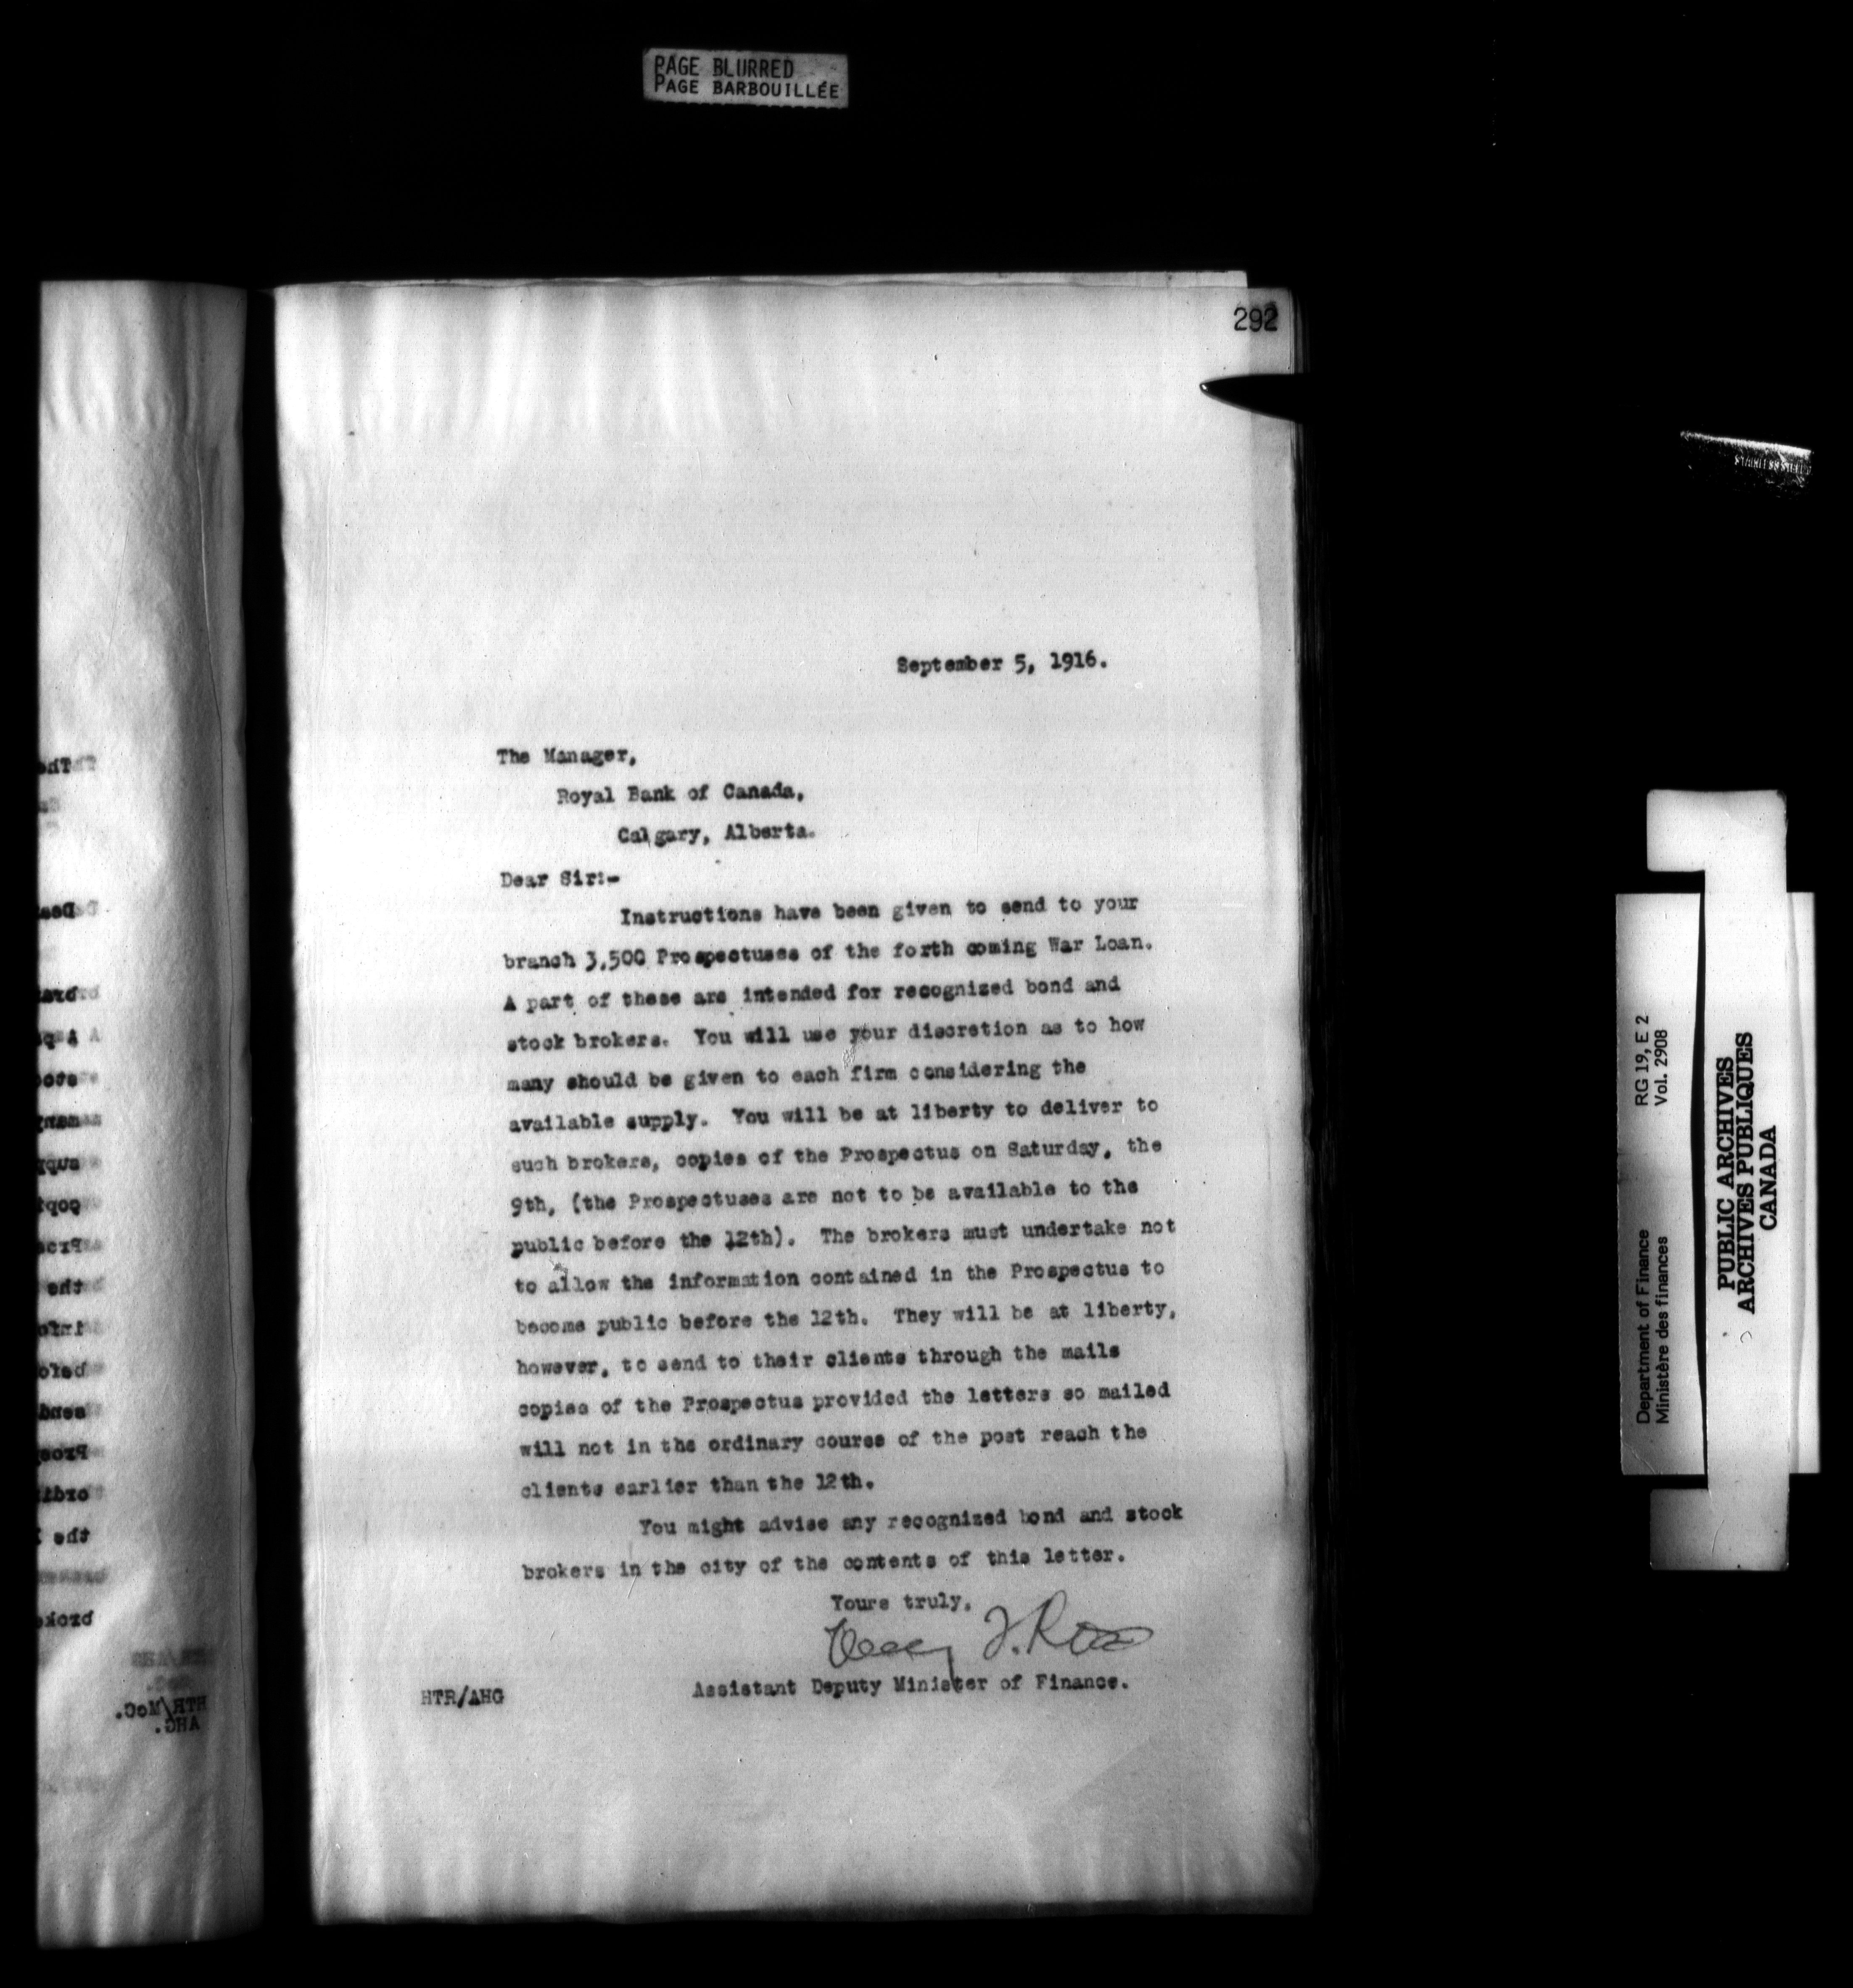 PAGE BLURRED
PAGE BARBOUILLÉE
292
September 5, 1916.
The Manager,
Royal Bank of Canada,
Calgary, Alberta.
Dear Sir:-
Instructions have been given to send to your
branch 3,500 Prospectuses of the forth coming War Loan.
A part of these are intended for recognized bond and
stock brokers. You will use your discretion as to how
many should be given to each firm considering the
available supply. You will be at liberty to deliver to
such brokers, copies of the Prospectus on Saturday, the
9th, (the Prospectuses are not to be available to the
public before the 12th). The brokers must undertake not
to allow the information contained in the Prospectus to
become public before the 12th. They will be at liberty,
however, to send to their clients through the mails
copies of the Prospectus provided the letters so mailed
will not in the ordinary course of the post reach the
clients earlier than the 12th.
You might advise any recognized bond and stock
brokers in the city of the contents of this letter.
Yours truly,
Assistant Deputy Minister of Finance.
HTR/AHG
HTR/McC.
AHG.
Department of Finance RG 19, E 2
Ministère des finances Vol. 2908
PUBLIC ARCHIVES
ARCHIVES PUBLIQUES
CANADA